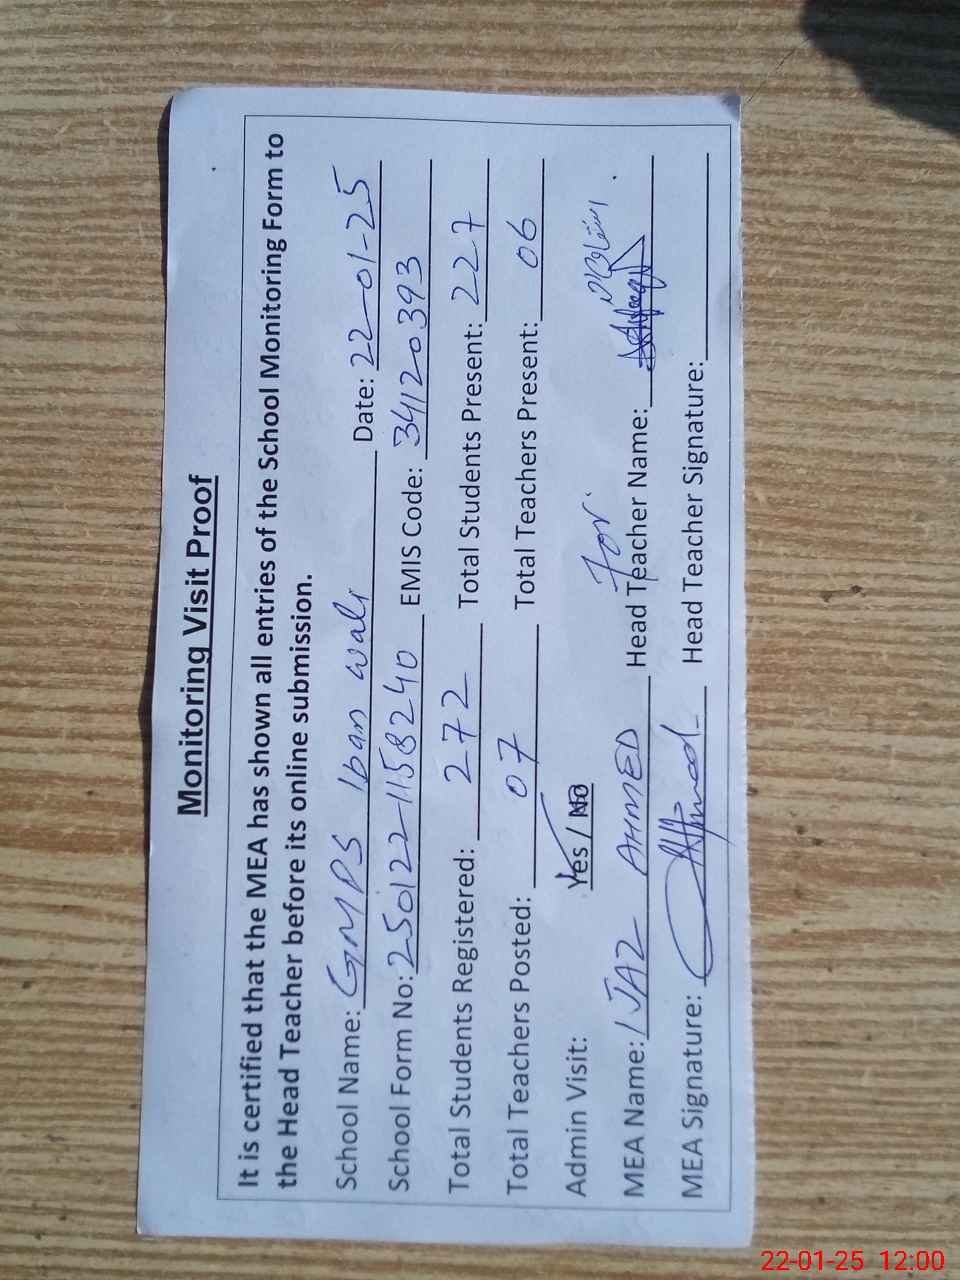 Monitoring Visit Proof
It is certified that the MEA has shown all entries of the School Monitoring Form to
the Head Teacher before its online submission.
School Name: GMPS Iban wali Date: 22-01-25
School Form No: 250122-1158240 EMIS Code: 34120393
Total Students Registered: 272 Total Students Present: 227
Total Teachers Posted: 07 Total Teachers Present: 06
Admin Visit: Yes / No
For
MEA Name: IJAZ AHMED Head Teacher Name:
MEA Signature: Ahmed Head Teacher Signature:
22-01-25 12:00